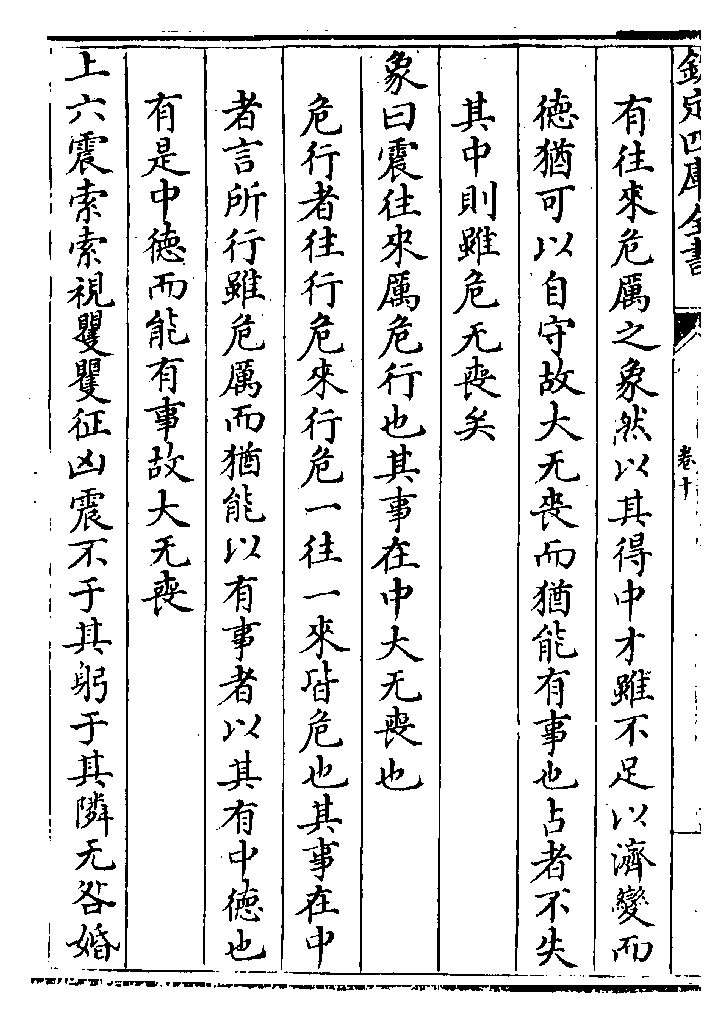 欽定四庫全書
卷十
有往來危厲之象然以其得中才雖不足以濟變而
德猶可以自守故大无喪而猶能有事也占者不失
其中則雖危无喪矣
象曰震往來厲危行也其事在中大无喪也
危行者往行危來行危一往一來皆危也其事在中
者言所行雖危厲而猶能以有事者以其有中德也
有是中德而能有事故大无喪
上六震索索視矍矍征凶震不于其躬于其隣无咎婚